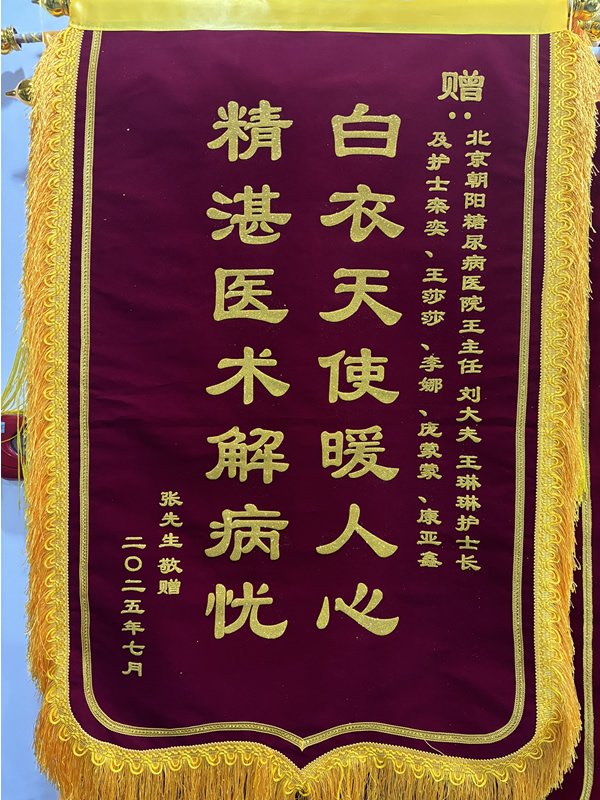 赠:
北京朝阳糖尿病医院王主任 刘大夫 王琳琳护士长
及护士栾奕、王莎莎、李娜、庞蒙蒙、康亚鑫
白衣天使暖人心
精湛医术解病忧
张先生 敬赠
二〇二五年七月